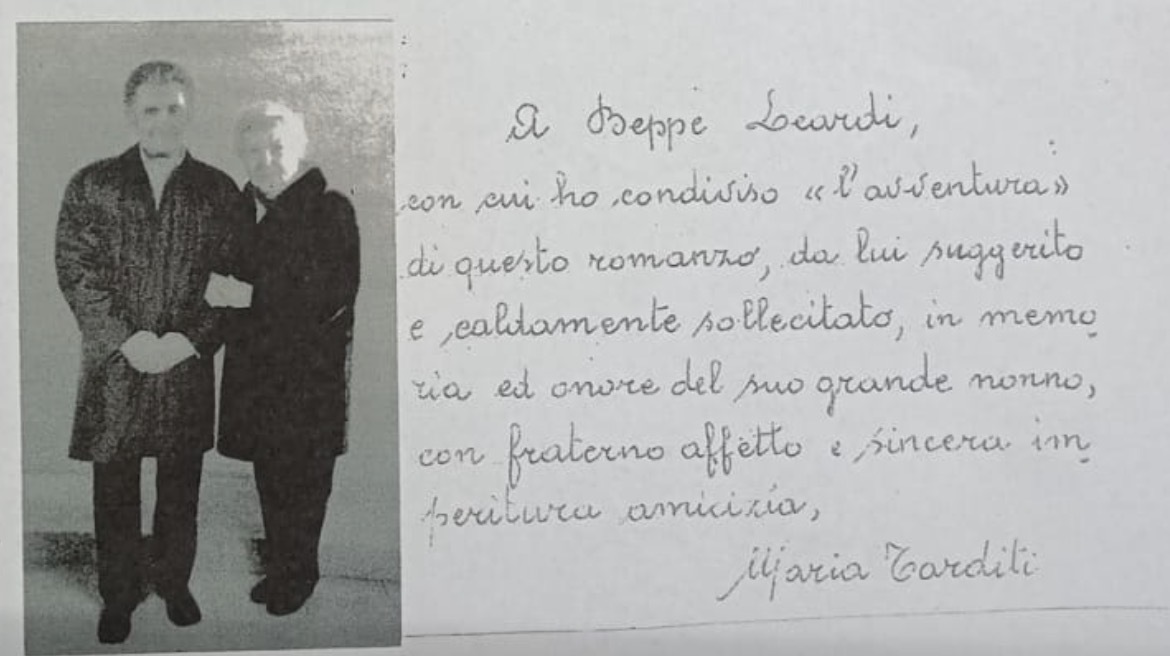 A Beppe Leardi,
con cui ho condiviso «l'avventura»
di questo romanzo, da lui suggerito
e caldamente sollecitato, in memo
ria ed onore del suo grande nonno,
con fraterno affetto e sincera im
peritura amicizia,
Maria Tarditi